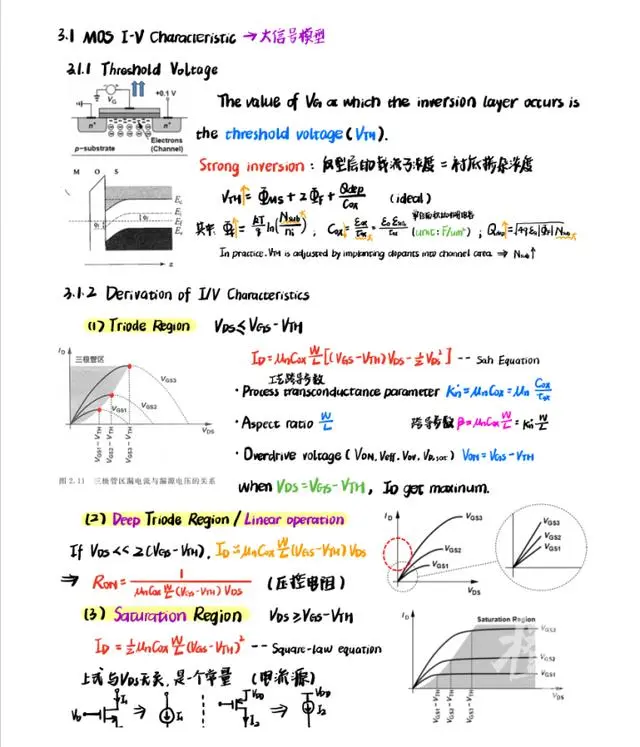 3.1 MOS I-V Characteristic → 大信号模型
3.1.1 Threshold Voltage
V_G
+0.1 V
n⁺
n⁺
Electrons
(Channel)
p-substrate
The value of V_G at which the inversion layer occurs is
the threshold voltage (V_TH).
Strong inversion: 反型层的载流子浓度 = 衬底掺杂浓度
M O S
E_c
E_i
E_f
E_v
z
V_TH = Φ_MS + 2Φ_F + Q_dep/C_ox (ideal)
其中 Φ_F = kT/q ln(N_sub/n_i), C_ox = ε_ox/t_ox = (unit: F/um²); Q_dep = √4qε_si|Φ_F|N_sub
In practice, V_TH is adjusted by implanting dopants into channel area ⇒ N_sub↑
3.1.2 Derivation of I/V Characteristics
(1) Triode Region V_DS ≤ V_GS − V_TH
I_D
三极管区
V_GS3
V_GS2
V_GS1
V_DS
V_GS1 − V_TH
V_GS2 − V_TH
V_GS3 − V_TH
图 2.11 三极管区漏电流与漏源电压的关系
I_D = μ_nC_ox W/L [(V_GS − V_TH)V_DS − ½V_DS²] -- Sah Equation
工艺跨导参数
• Process transconductance parameter K_n' = μ_nC_ox = μ_n
• Aspect ratio W/L 跨导参数 β = μ_nC_ox W/L = K_n' W/L
• Overdrive voltage (V_ON, V_eff, V_ov, V_D,sat) V_ON = V_GS − V_TH
when V_DS = V_GS − V_TH, I_D get maxinum.
(2) Deep Triode Region / Linear operation
If V_DS << 2(V_GS − V_TH), I_D ≈ μ_nC_ox W/L (V_GS − V_TH) V_DS
⇒ R_ON = 1/(μ_nC_ox W/L (V_GS − V_TH) V_DS) (压控电阻)
I_D
V_GS3
V_GS2
V_GS1
V_DS
V_GS3
V_GS2
V_GS1
(3) Saturation Region V_DS ≥ V_GS − V_TH
I_D = ½μ_nC_ox W/L (V_GS − V_TH)² -- Square-law equation
上式与V_DS无关, 是个常量 (电流源)
I_D
Saturation Region
V_GS3
V_GS2
V_GS1
V_DS
V_GS1 − V_TH
V_GS2 − V_TH
V_GS3 − V_TH
I_1 ⇒ I_1 V_DD I_2 ⇒ V_DD I_2